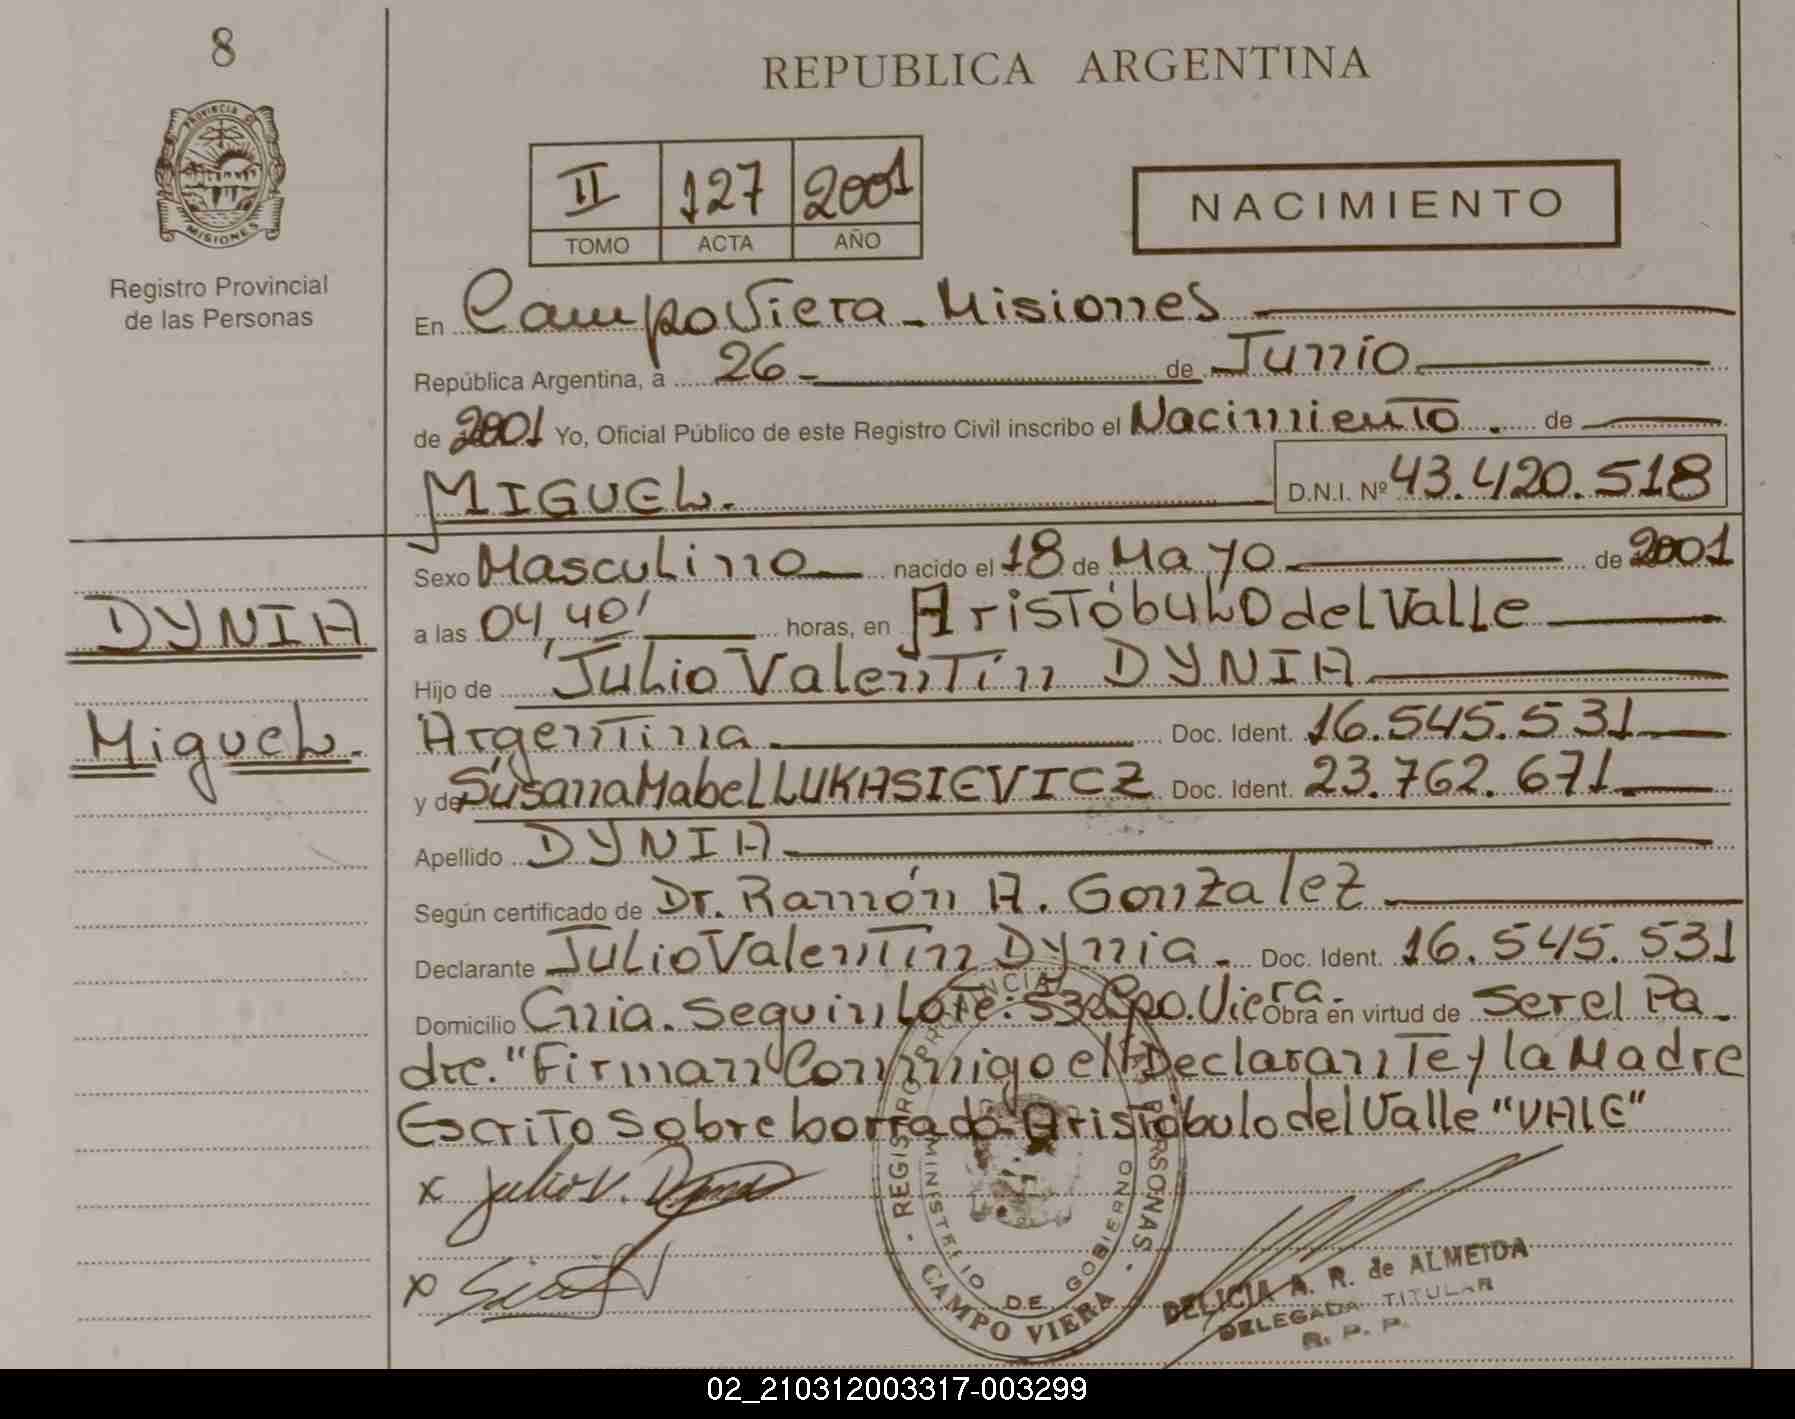 8
PROVINCIA DE
MISIONES
Registro Provincial
de las Personas
REPUBLICA ARGENTINA
II 127 2001
TOMO ACTA AÑO
NACIMIENTO
En Campo Viera - Misiones
República Argentina, a 26 - de Junio
de 2001 Yo, Oficial Público de este Registro Civil inscribo el Nacimiento. de
MIGUEL. D.N.I. Nº 43.420.518
Sexo Masculino nacido el 18 de Mayo de 2001
DYNIA
a las 04,40' horas, en Aristóbulo del Valle
Hijo de Julio Valentín DYNIA
Miguel.
Argentina Doc. Ident. 16.545.531
y de Susana Mabel LUKASIEVICZ Doc. Ident. 23.762.671
Apellido DYNIA
Según certificado de Dr. Ramón A. Gonzalez
Declarante Julio Valentín Dynia. Doc. Ident. 16.545.531
Domicilio Cnia. Seguin Lote: 53 Cpo. Viera. Obra en virtud de Ser el Pa-
dre. "Firman Conmigo el Declarante y la Madre
Escrito Sobre borrado Aristóbulo del Valle "VALE"
x Julio V. Dynia
x
REGISTRO PROVINCIAL DE LAS PERSONAS
MINISTERIO DE GOBIERNO
CAMPO VIERA
DELICIA A. R. de ALMEIDA
DELEGADA TITULAR
R. P. P.
02_210312003317-003299